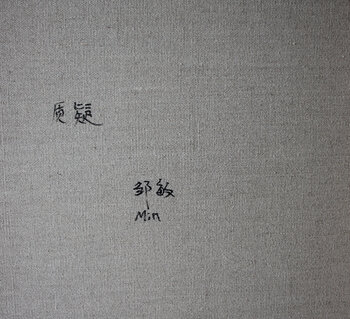 质疑
邹敏
Min